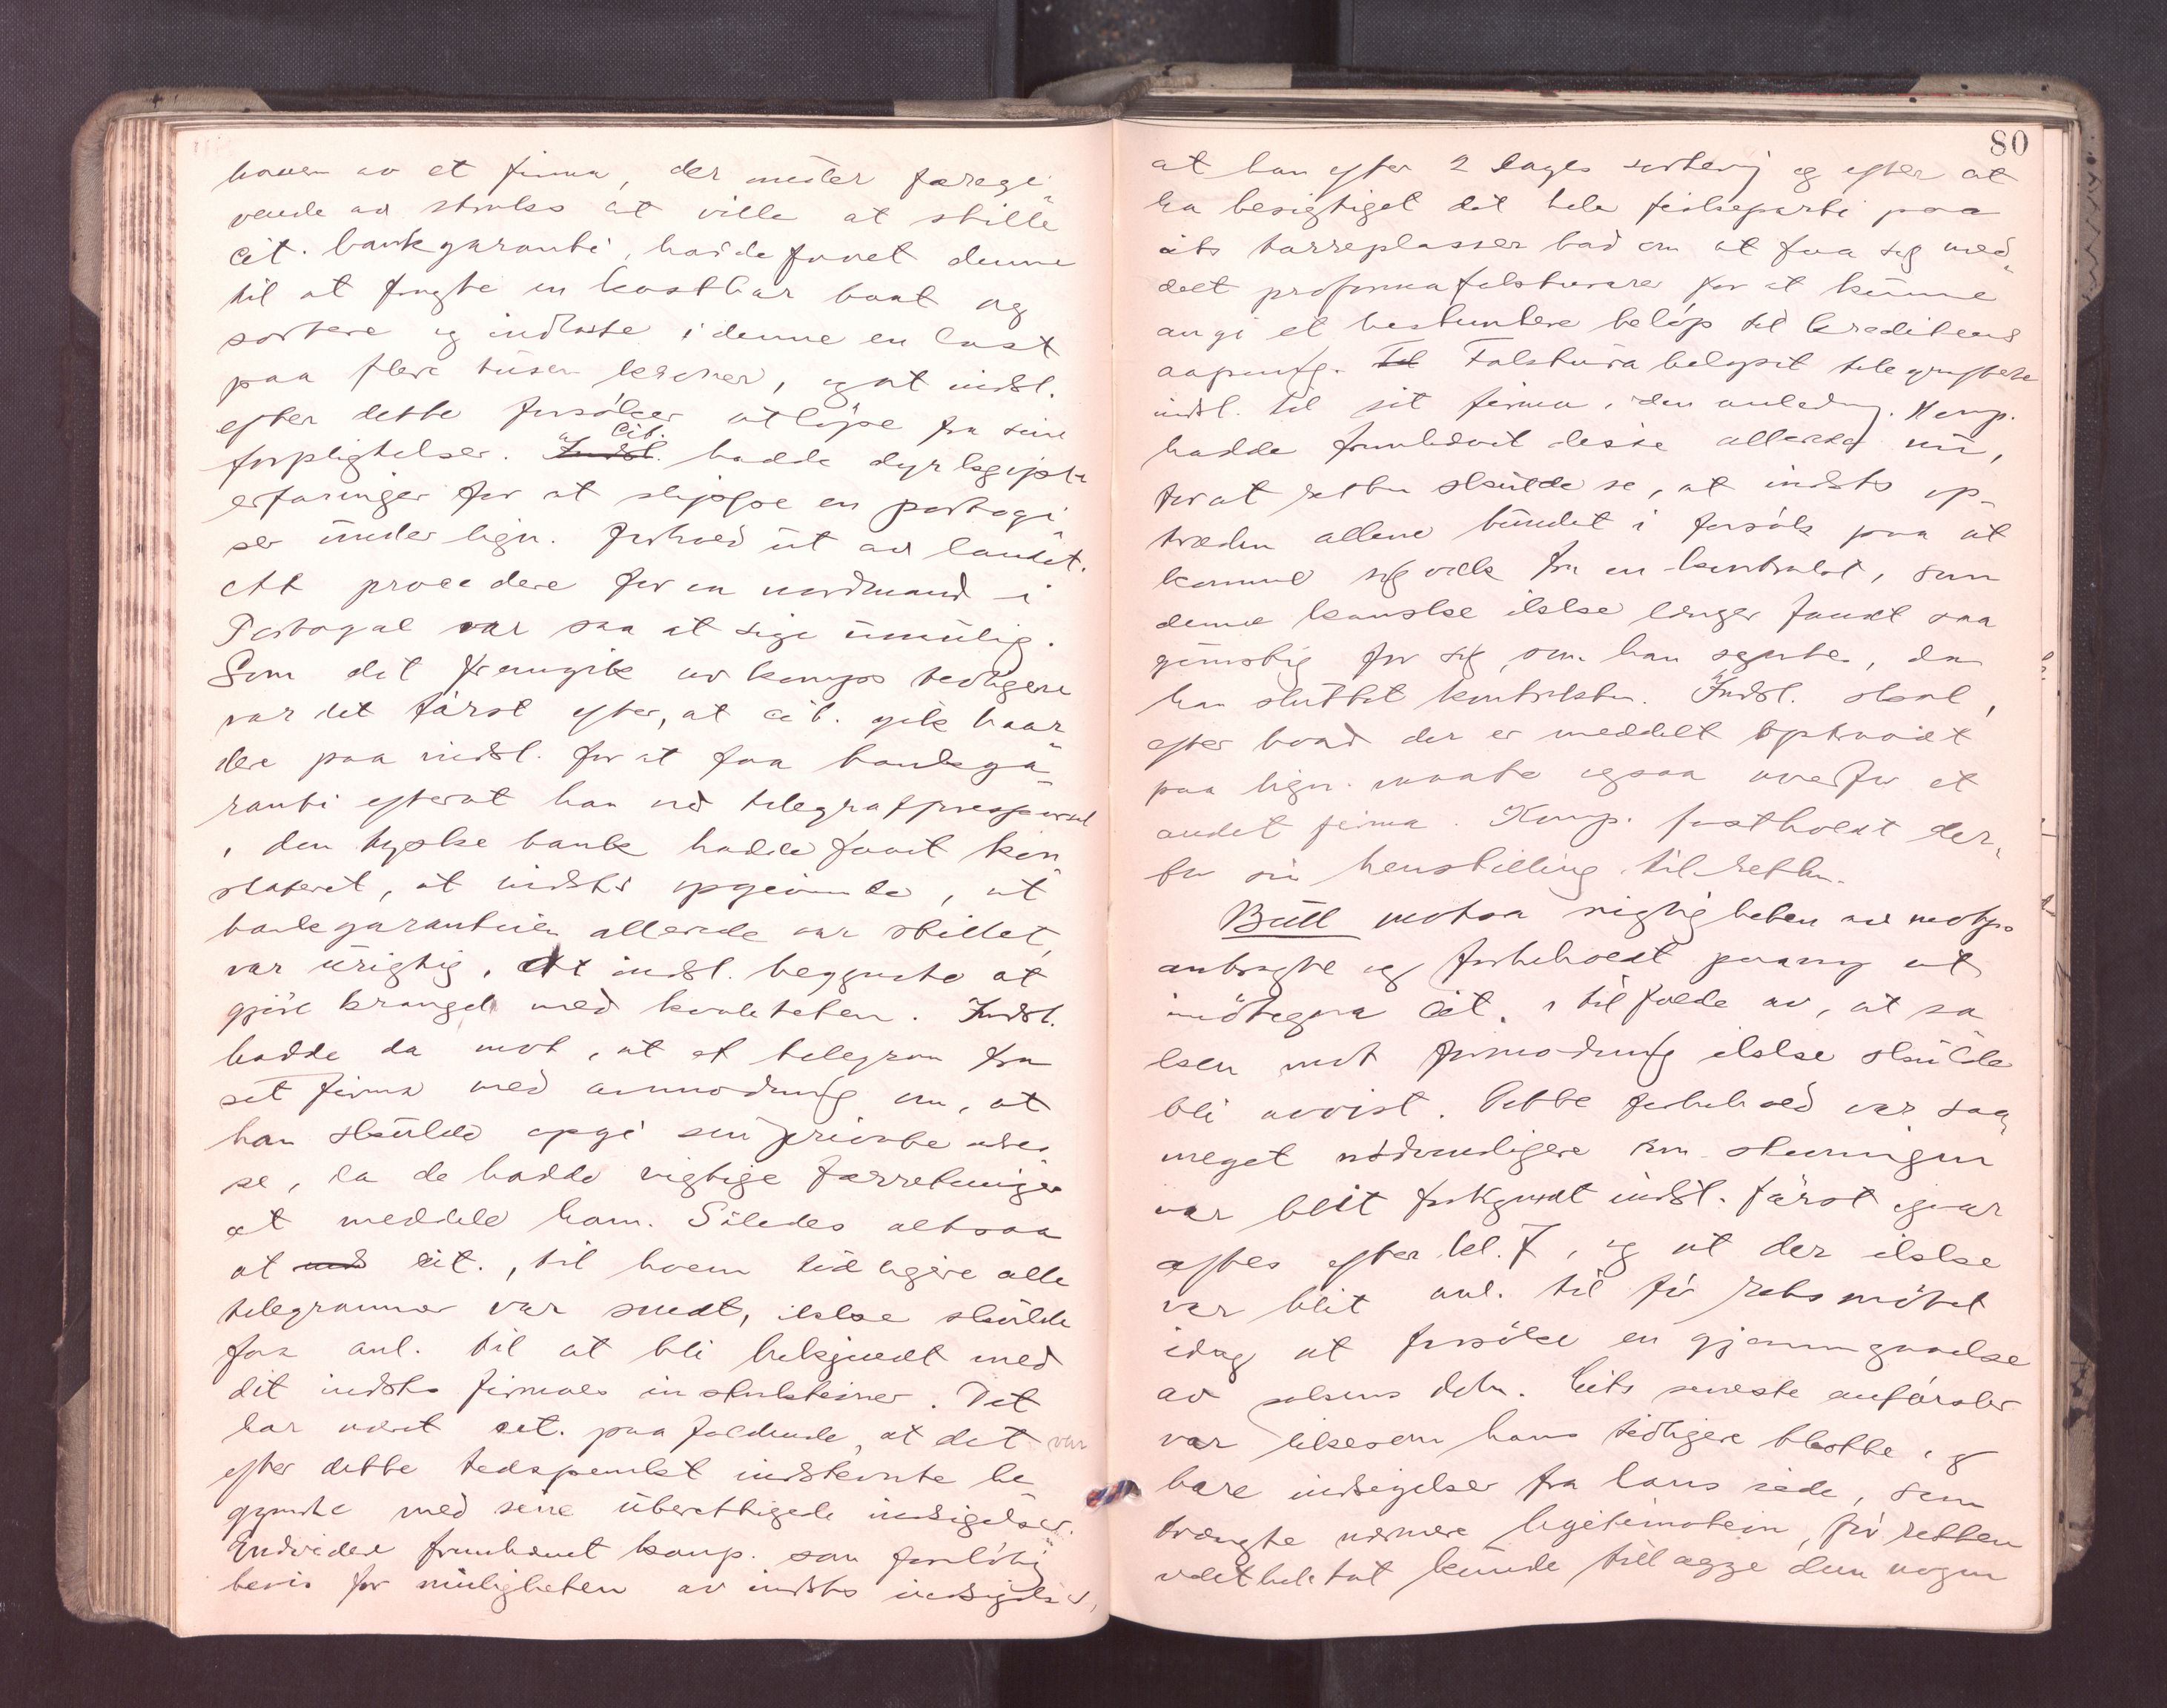 haven av et firma, der under foregi
vende av straks at ville at stille
cit. bankgaranti, havde faaet denne
til at fragte en kostbar baat og
sortere og indlaste i denne en last
paa flere tusen kroner, og at indst.
efter dette forsøker at løpe fra sine
forpligtelser. Indst. Cit. hadde dyrkjøpte
erfaringer for at slippe en portugi
ser under lign. forhold ut av landet.
At procedere for en nordmand i
Portugal var saa at sige umulig.
Som det fremgik av komps tidligere
var det først efter, at cit. gik haar
dere paa indst. for at faa bankga
ranti efterat han ved telegrafforespørsel
i den tyske bank hadde faaet kon
stateret, at indsts opgivende, at
bankgarantien allerede var stillet,
var urigtig, At indst. begyndte at
gjøre krangel med kvaliteten. Indst.
hadde da mot, at et telegram fra
sit firma med anmodning om, at
han skulde opgi sin private adres
se, da de hadde vigtige forretninger
at meddele ham. Således altsaa
at cit., til hvem tidligere alle
telegrammer var sendt, ikke skulde
faa anl. til at bli bekjendt med
dit indsts firmaes instruktioner. Det
har været cit. paafaldende, at det var
efter dette tidspunkt indstevnte be
gyndte med sine uberettigede indsigelser.
Endvidere fremhævet komp. som foreløbig
bevis for muligheten av indsts indsigelser,
80
at han efter 2 dages sortering og efter at
ha besigtiget det hele fiskeparti paa
cits tørreplasser bad om at faa sig med
delt proformafakturaer for at kunne
angi et bestemtere beløp til kreditens
aapning. Fakturabeløpet telegraferte
indst. til sit firma i den anledning. Komp.
hadde fremhævet disse allerede nu,
for at retten skulde se, at indsts op-
træden allene bundet i forsøk paa at
komme sig væk fra en kontrakt, som
denne kanske ikke længer fandt saa
gunstig for sig, som han regnte, da
han sluttet kontrakten. Indst. skal,
efter hvad der er meddelt optraadt
paa lign. maate ogsaa overfor et
andet firma. Komp. fastholdt der
for sin henstilling til retten.
Bull motsa rigtigheten av motp.
anbragte og forbeholdt paany at
imøtegaa cit. i tilfælde av, at sa
ken mot formodning ikke skulde
bli avvist. Dette forbehold var saa
meget nødvendigere som stevningen
var blit forkyndt indst. først igaar
aftes efter kl. 7, og at der ikke
var blit anl. til før retsmøtet
idag at forsøke en gjennemgaaelse
av sakens dok. Cits seneste anførsler
var likesom hans tidligere blotte og
bare indsigelser fra hans side, som
trængte nærmere legitimation, før retten
vethele tat kunde tillægge dem nogen